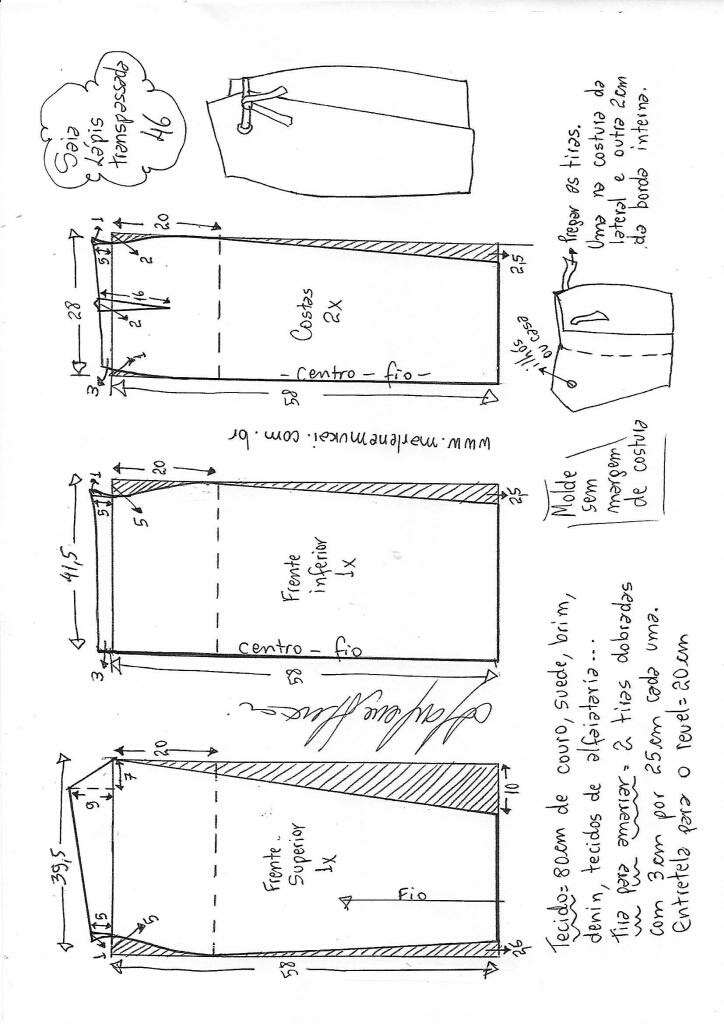 Saia
Lápis
transpassada
46
39,5
1
5
5
9
7
20
Frente
Superior
1x
Fio
58
2,5
10
41,5
3
5
1
5
20
Frente
inferior
1x
centro - fio
58
2,5
www.marlenemukai.com.br
28
3
1
2
16
5
1
2
20
Costas
2x
- centro - fio -
58
2,5
Tecido= 80cm de couro, suede, brim,
denin, tecidos de alfaiataria...
tira para amarrar= 2 tiras dobradas
com 3cm por 25cm cada uma.
Entretela para o revel= 20cm
Molde
sem
margem
de costura
ilhós
ou case
Pregar as tiras.
Uma na costura da
lateral e outra 2cm
da borda interna.